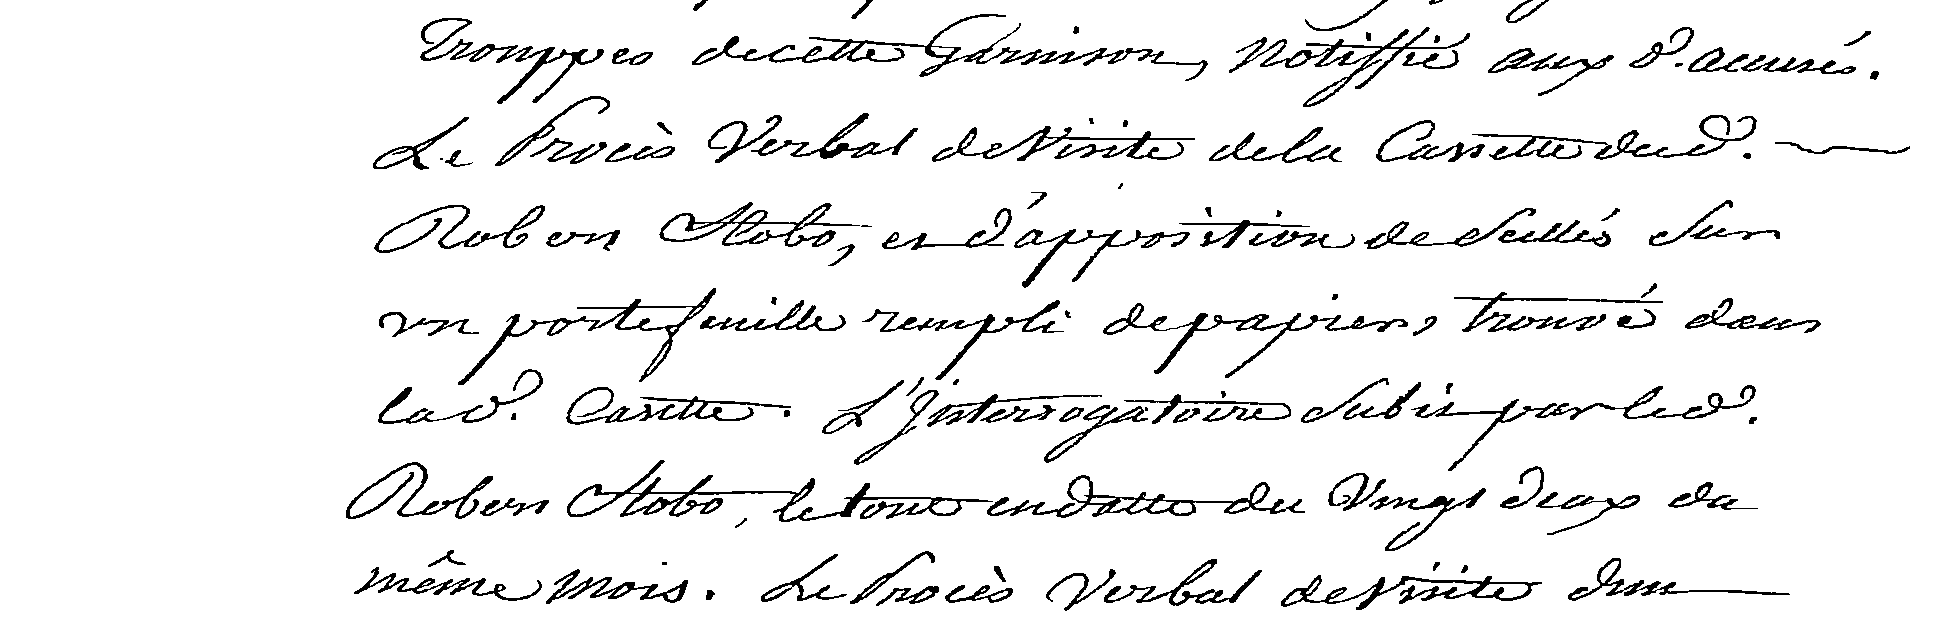 Trouppes de cette Garnison, Notiffié aux d. accusés.
Le Procès Verbal de Visite de la Cassette dud.
Robert Stobo, et d'apposition de scellés sur
un portefeuille rempli de papiers trouvé dans
lad. Casette. L'Interrogatoire subit par led.
Robert Stobo, le tout en datte du Vingt deux du
même mois. Le Procès Verbal de Visite d'un